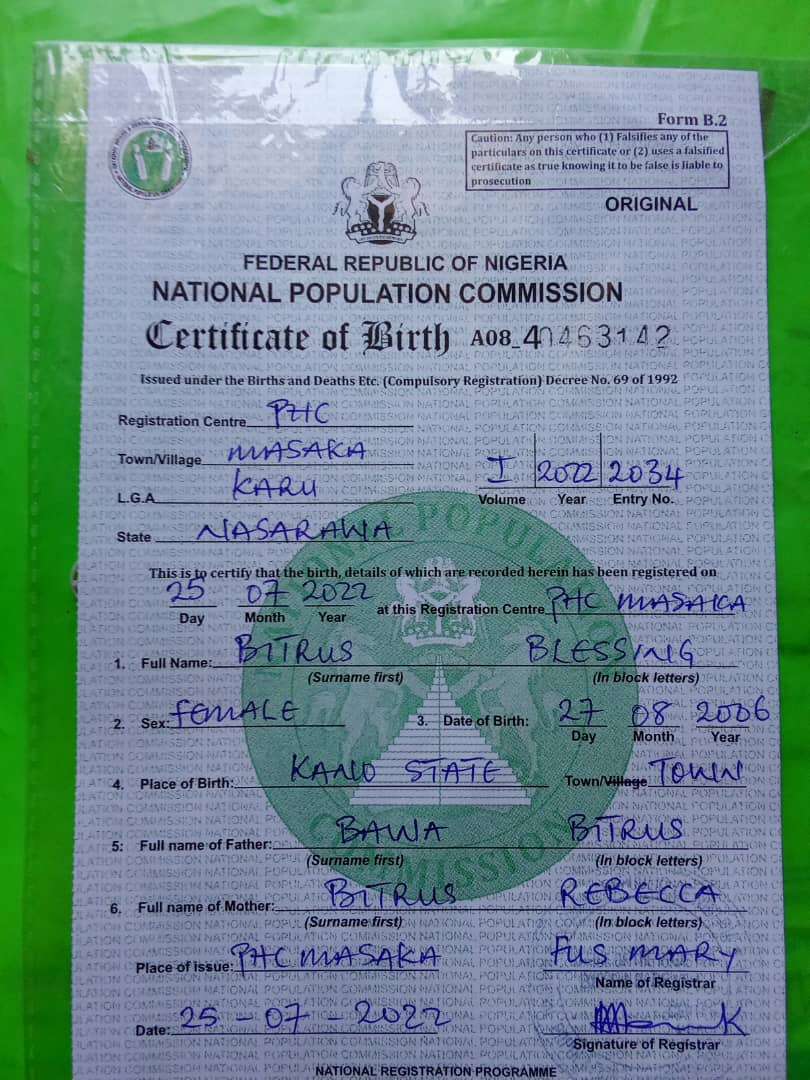 Form B.2
Caution: Any person who (1) Falsifies any of the
particulars on this certificate or (2) uses a falsified
certificate as true knowing it to be false is liable to
prosecution
ORIGINAL
FEDERAL REPUBLIC OF NIGERIA
NATIONAL POPULATION COMMISSION
Certificate of Birth A08_40463142
Issued under the Births and Deaths Etc. (Compulsory Registration) Decree No. 69 of 1992
Registration Centre PHC
Town/Village MASAKA
L.G.A KARU
I 2022 2034
Volume Year Entry No.
State NASARAWA
This is to certify that the birth, details of which are recorded herein has been registered on
25 07 2022 at this Registration Centre PHC MASAKA
Day Month Year
1. Full Name: BITRUS BLESSING
(Surname first) (In block letters)
2. Sex: FEMALE 3. Date of Birth: 27 08 2006
Day Month Year
4. Place of Birth: KANO STATE Town/Village TOWN
5: Full name of Father: BAWA BITRUS
(Surname first) (In block letters)
6. Full name of Mother: BITRUS REBECCA
(Surname first) (In block letters)
Place of issue: PHC MASAKA FUS MARY
Name of Registrar
Date: 25-07-2022
Signature of Registrar
NATIONAL REGISTRATION PROGRAMME